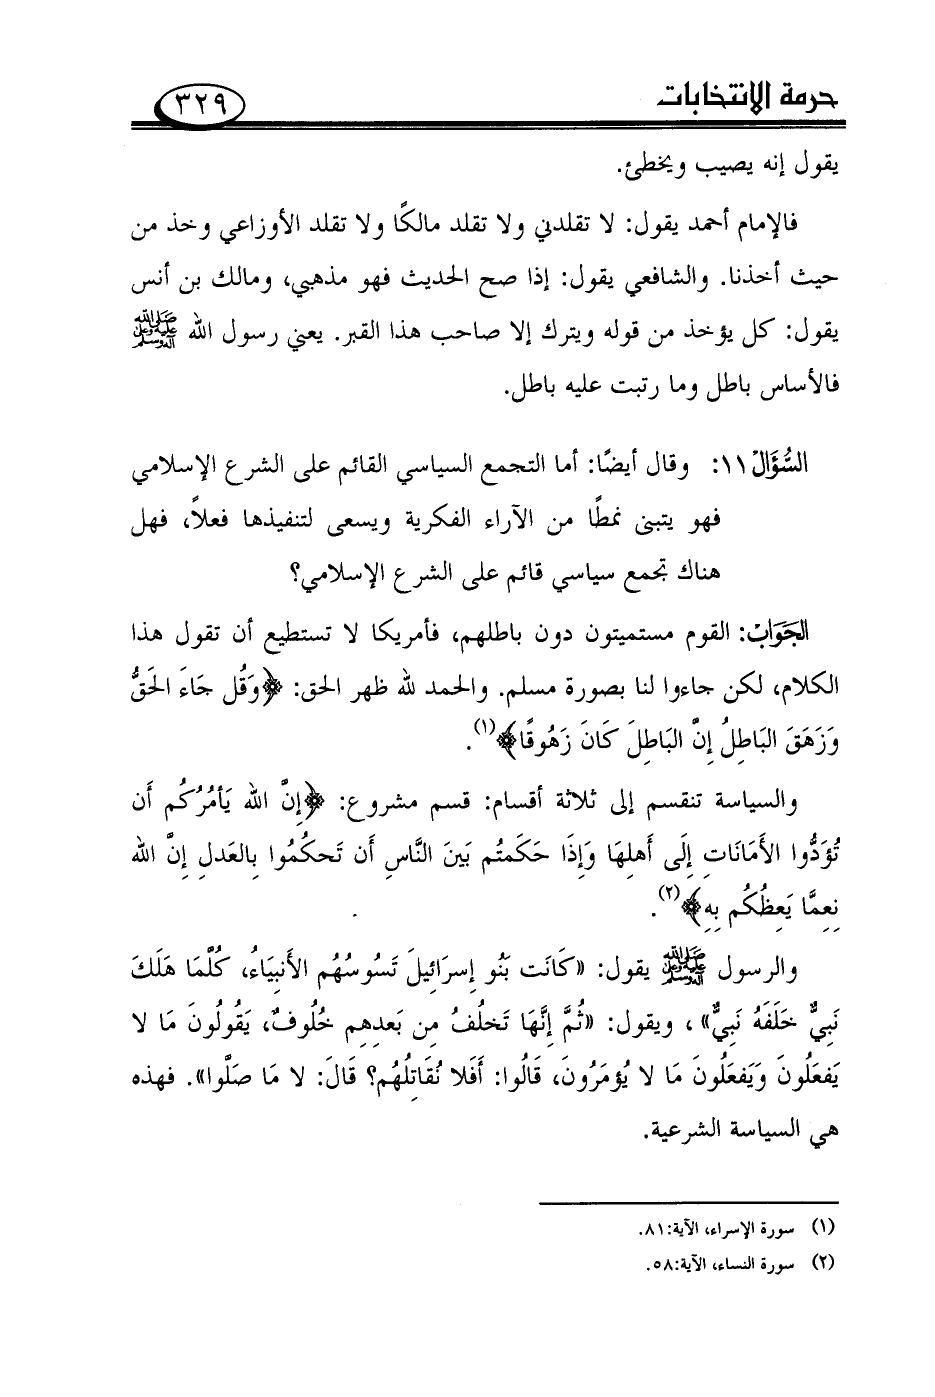 حرمة الانتخابات
٣٢٩
يقول إنه يصيب ويخطئ.
فالإمام أحمد يقول: لا تقلدني ولا تقلد مالكًا ولا تقلد الأوزاعي وخذ من
حيث أخذنا. والشافعي يقول: إذا صح الحديث فهو مذهبي، ومالك بن أنس
يقول: كل يؤخذ من قوله ويترك إلا صاحب هذا القبر. يعني رسول الله ﷺ
فالأساس باطل وما رتبت عليه باطل.
السُّؤَالْ ١١: وقال أيضًا: أما التجمع السياسي القائم على الشرع الإسلامي
فهو يتبنى نمطًا من الآراء الفكرية ويسعى لتنفيذها فعلاً، فهل
هناك تجمع سياسي قائم على الشرع الإسلامي؟
الجَوَابْ: القوم مستميتون دون باطلهم، فأمريكا لا تستطيع أن تقول هذا
الكلام، لكن جاءوا لنا بصورة مسلم. والحمد لله ظهر الحق: ﴿وَقُل جَاءَ الحَقُّ
وَزَهَقَ البَاطِلُ إِنَّ البَاطِلَ كَانَ زَهُوقًا﴾(١).
والسياسة تنقسم إلى ثلاثة أقسام: قسم مشروع: ﴿إِنَّ الله يَأمُرُكُم أَن
تُؤَدُّوا الأَمَانَاتِ إِلَى أَهلِهَا وَإِذَا حَكَمتُم بَينَ النَّاسِ أَن تَحكُمُوا بِالعَدلِ إِنَّ الله
نِعِمَّا يَعِظُكُم بِهِ﴾(٢).
والرسول ﷺ يقول: «كَانَت بَنُو إِسرَائِيلَ تَسُوسُهُم الأَنبِيَاءُ، كُلَّمَا هَلَكَ
نَبِيٌّ خَلَفَهُ نَبِيٌّ»، ويقول: «ثُمَّ إِنَّهَا تَخلُفُ مِن بَعدِهِم خُلُوفٌ، يَقُولُونَ مَا لا
يَفعَلُونَ وَيَفعَلُونَ مَا لا يُؤمَرُونَ، قَالُوا: أَفَلا نُقَاتِلُهُم؟ قَالَ: لا مَا صَلَّوا». فهذه
هي السياسة الشرعية.
(١) سورة الإسراء، الآية:٨١.
(٢) سورة النساء، الآية:٥٨.